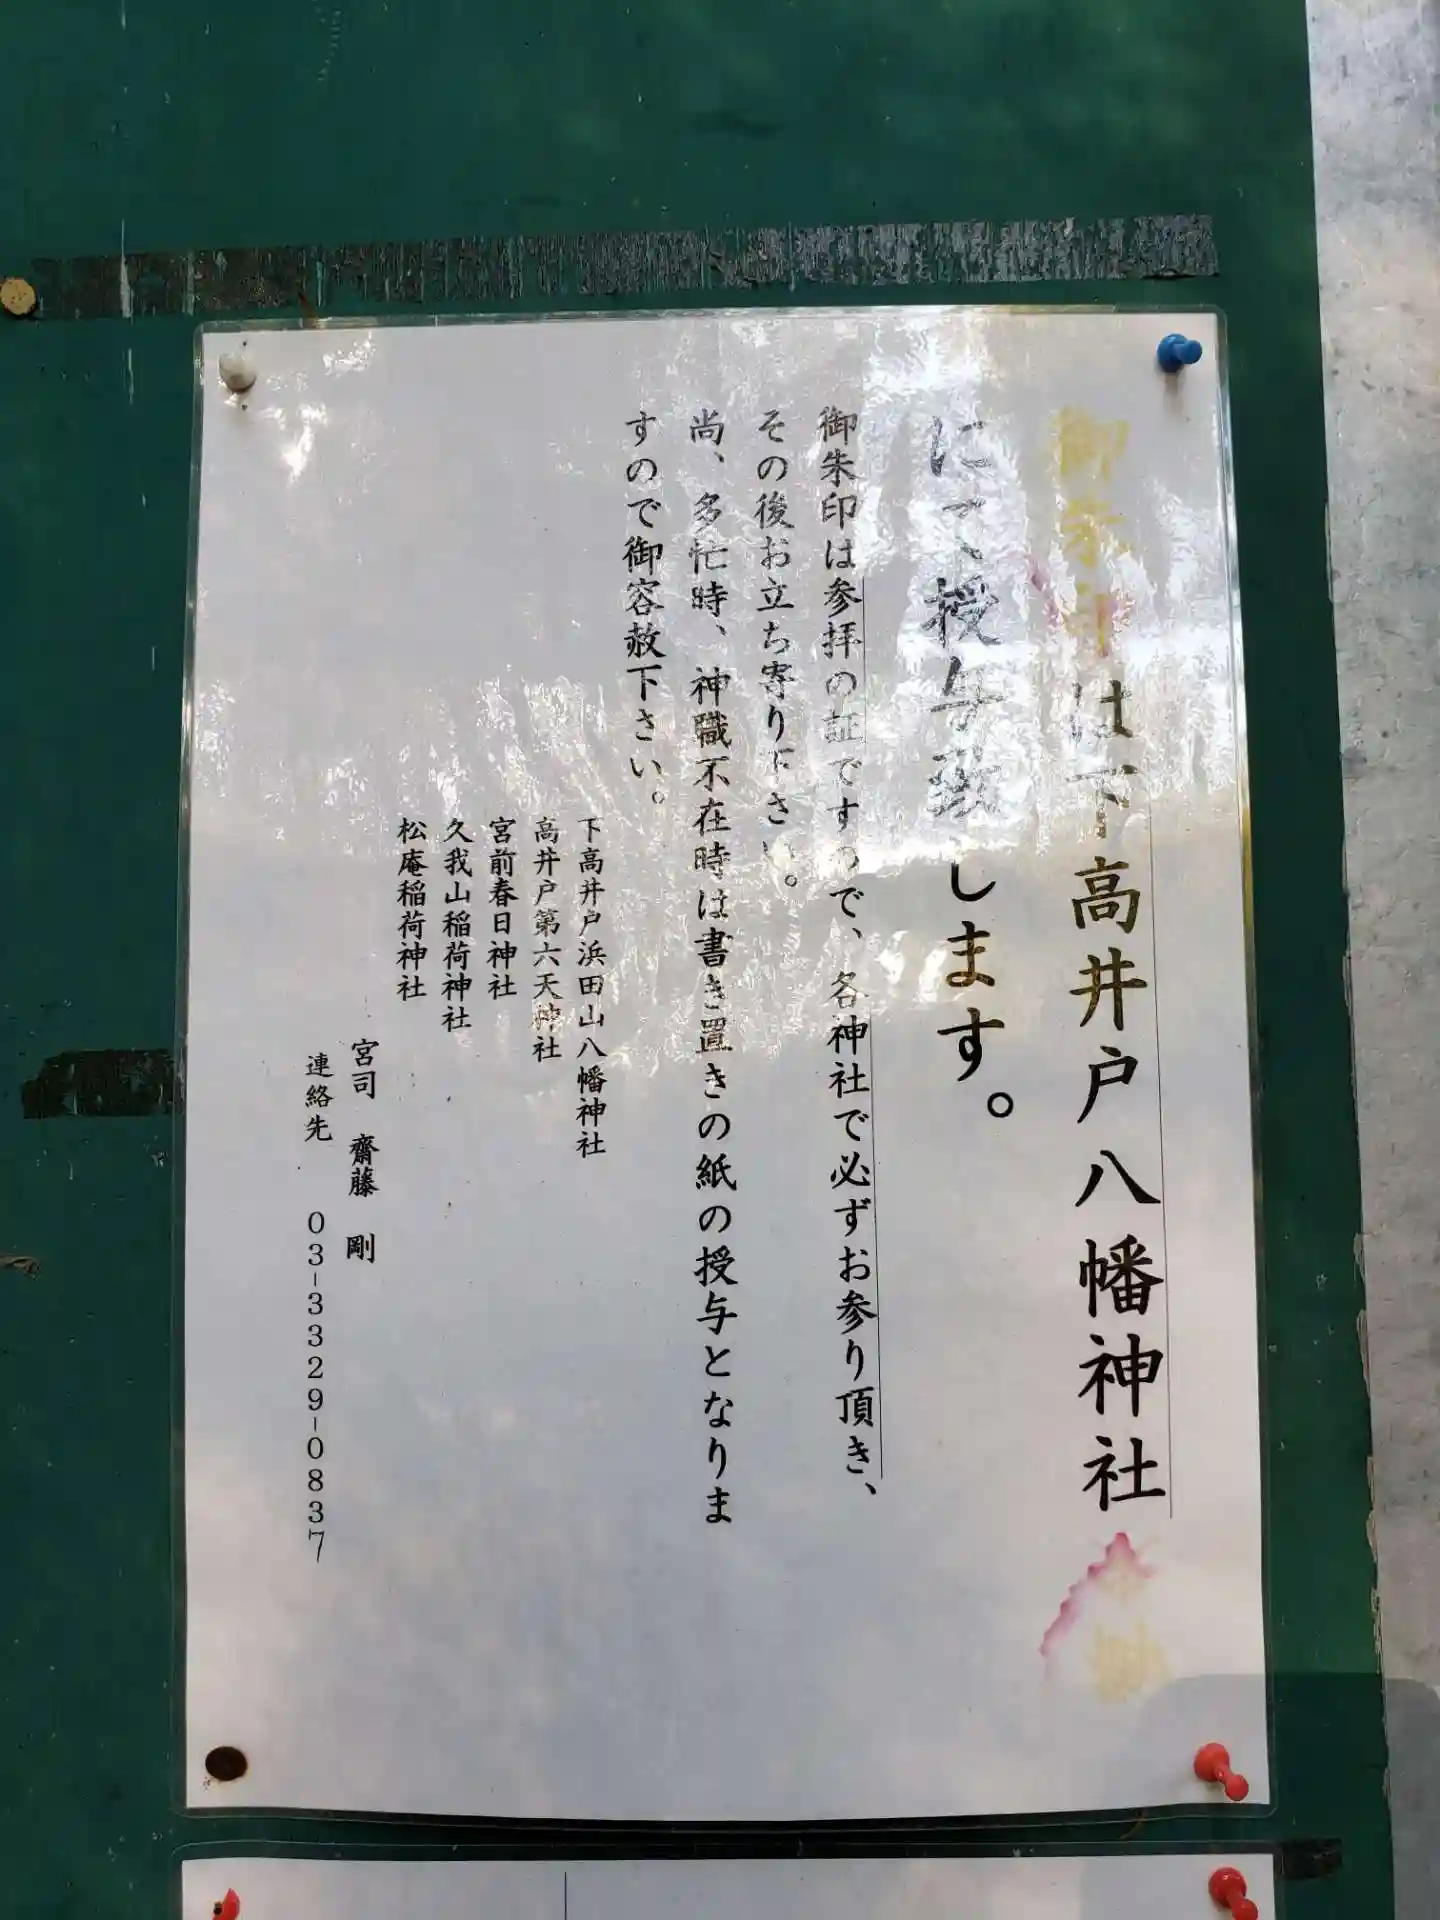 御朱印は下高井戸八幡神社
にて授与致します。
御朱印は参拝の証ですので、各神社で必ずお参り頂き、
その後お立ち寄り下さい。
尚、多忙時、神職不在時は書き置きの紙の授与となりま
すので御容赦下さい。
下高井戸浜田山八幡神社
高井戸第六天神社
宮前春日神社
久我山稲荷神社
松庵稲荷神社
宮司 齋藤 剛
連絡先 03-3329-0837